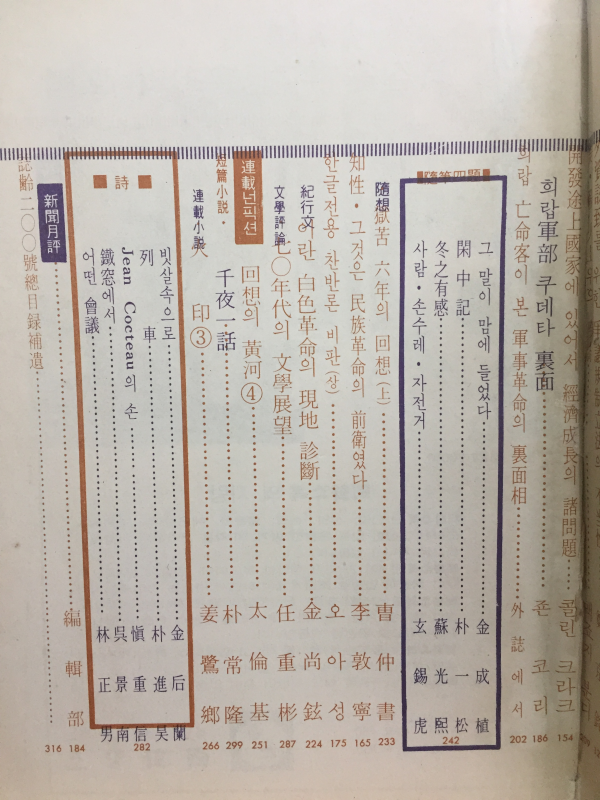 開發途上國家에 있어서 經濟成長의 諸問題 콜린 크라크 154
희랍軍部 쿠데타 裏面 죤 코리 186
희랍 亡命客이 본 軍事革命의 裏面相 外誌에서 202
■隨筆四題■
그 말이 맘에 들었다 金成植
閑中記 朴一松
冬之有感 蘇光熙
사람・손수레・자전거 玄錫虎
242
隨想 獄苦 六年의 回想(上) 曺仲書 233
知性・그것은 民族革命의 前衛였다 李敦寧 165
한글전용 찬반론 비판(상) 오아성 175
紀行文 이란 白色革命의 現地 診斷 金尚鉉 224
文學評論 七○年代의 文學展望 任重彬 287
連載넌픽션 回想의 黃河④ 太倫基 251
短篇小説・千夜一話 朴常隆 299
連載小説 火印③ 姜鷺鄉 266
■詩■
빗살속으로 金后蘭
列車 朴進吳
Jean Cocteau의 손 愼重信
鐵窓에서 吳景南
어떤 會議 林正男
282
新聞月評 316
誌齡二○○號總目録補遺 編輯部 184